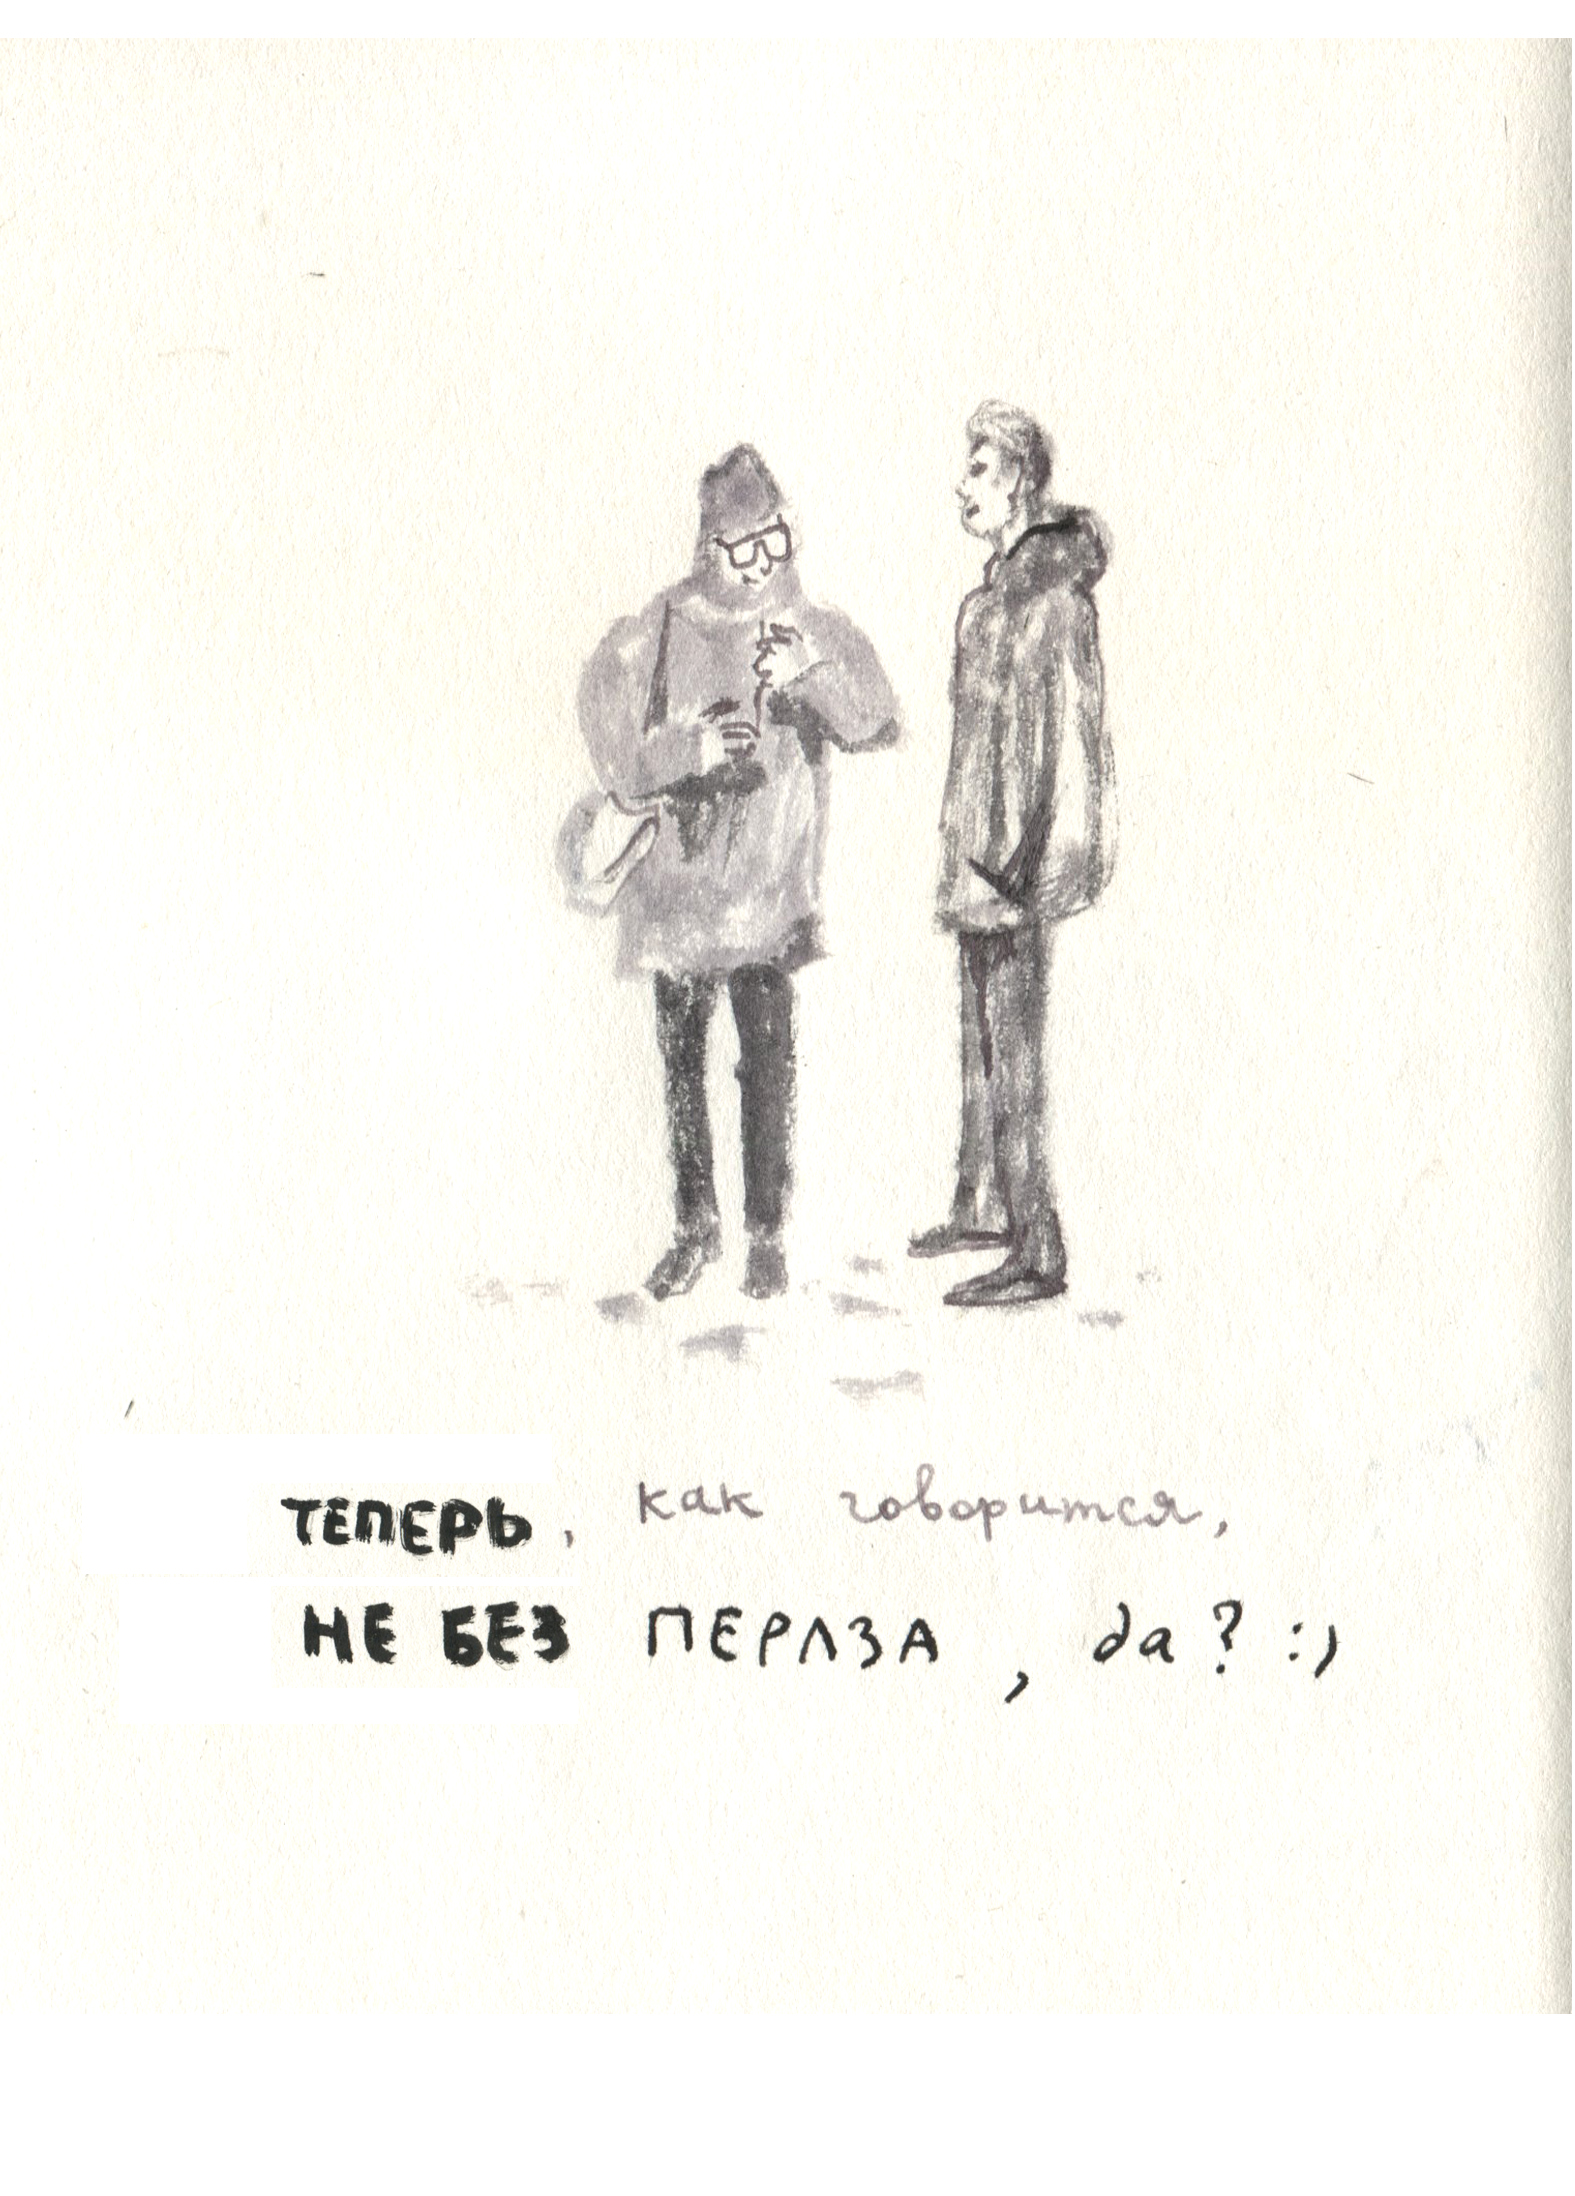 ТЕПЕРЬ, как говорится,
НЕ БЕЗ ПЕРЛЗА, да? :)